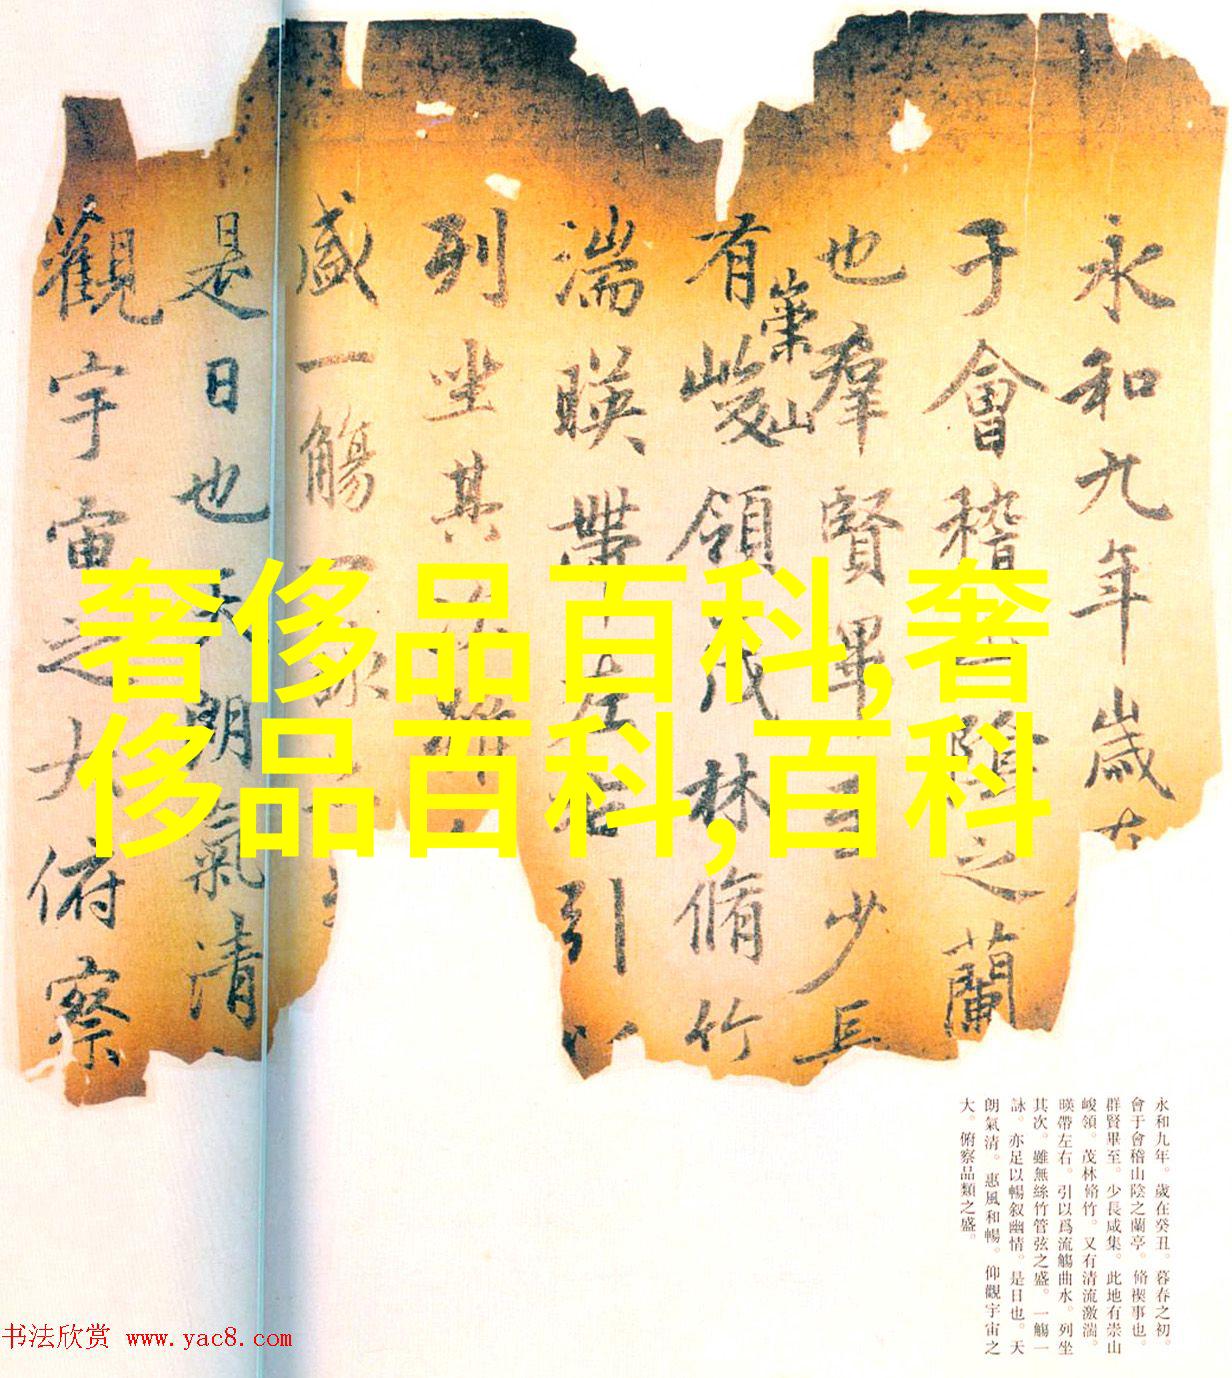 永和九年歲在
于會稽山陰之蘭
也羣賢畢至少長
有崇山峻領茂林脩竹
湍暎帶左右引以
列坐其次雖
盛一觴一詠
是日也天朗氣清
觀宇宙之大俯察
奢侈品百科,奢
侈品百科,百科
永和九年。歲在癸丑。暮春之初。
會于會稽山陰之蘭亭。脩禊事也。
群賢畢至。少長咸集。此地有崇山
峻領。茂林脩竹。又有清流激湍。
暎帶左右。引以爲流觴曲水。列坐
其次。雖無絲竹管弦之盛。一觴一
詠。亦足以暢叙幽情。是日也。天
朗氣清。惠風和暢。仰觀宇宙之
大。俯察品類之盛。
书法欣赏 www.yac8.com